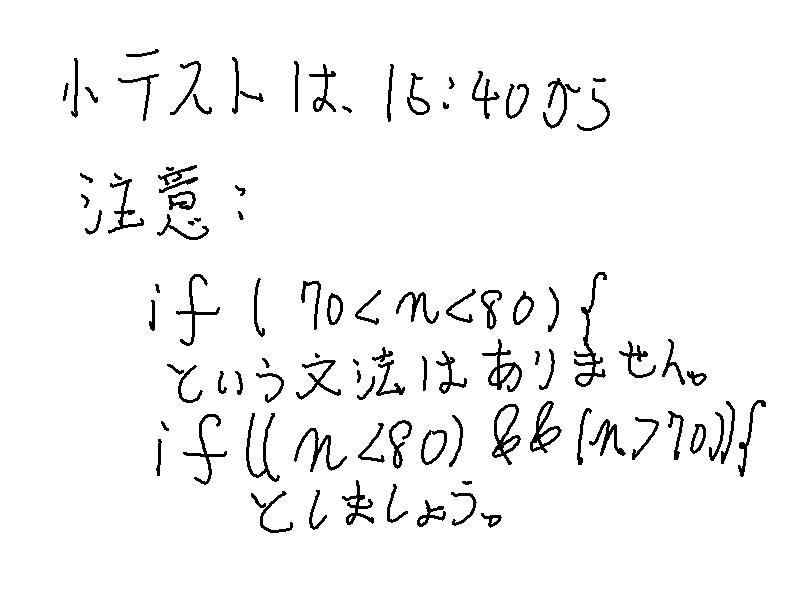 小テストは、15:40から
注意:
if ( 70<n<80){
という文法はありません。
if((n<80) && (n>70)){
としましょう。